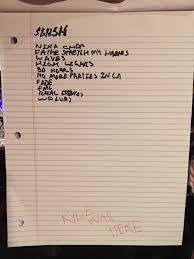 SWISH
NINA CHOP
FATHER STRETCH MY HANDS
WAVES
HIGH LIGHTS
30 HOURS
NO MORE PARTIES IN LA
FADE
FML
REAL FRIENDS
WOLVES
KYLIE WAS
HERE